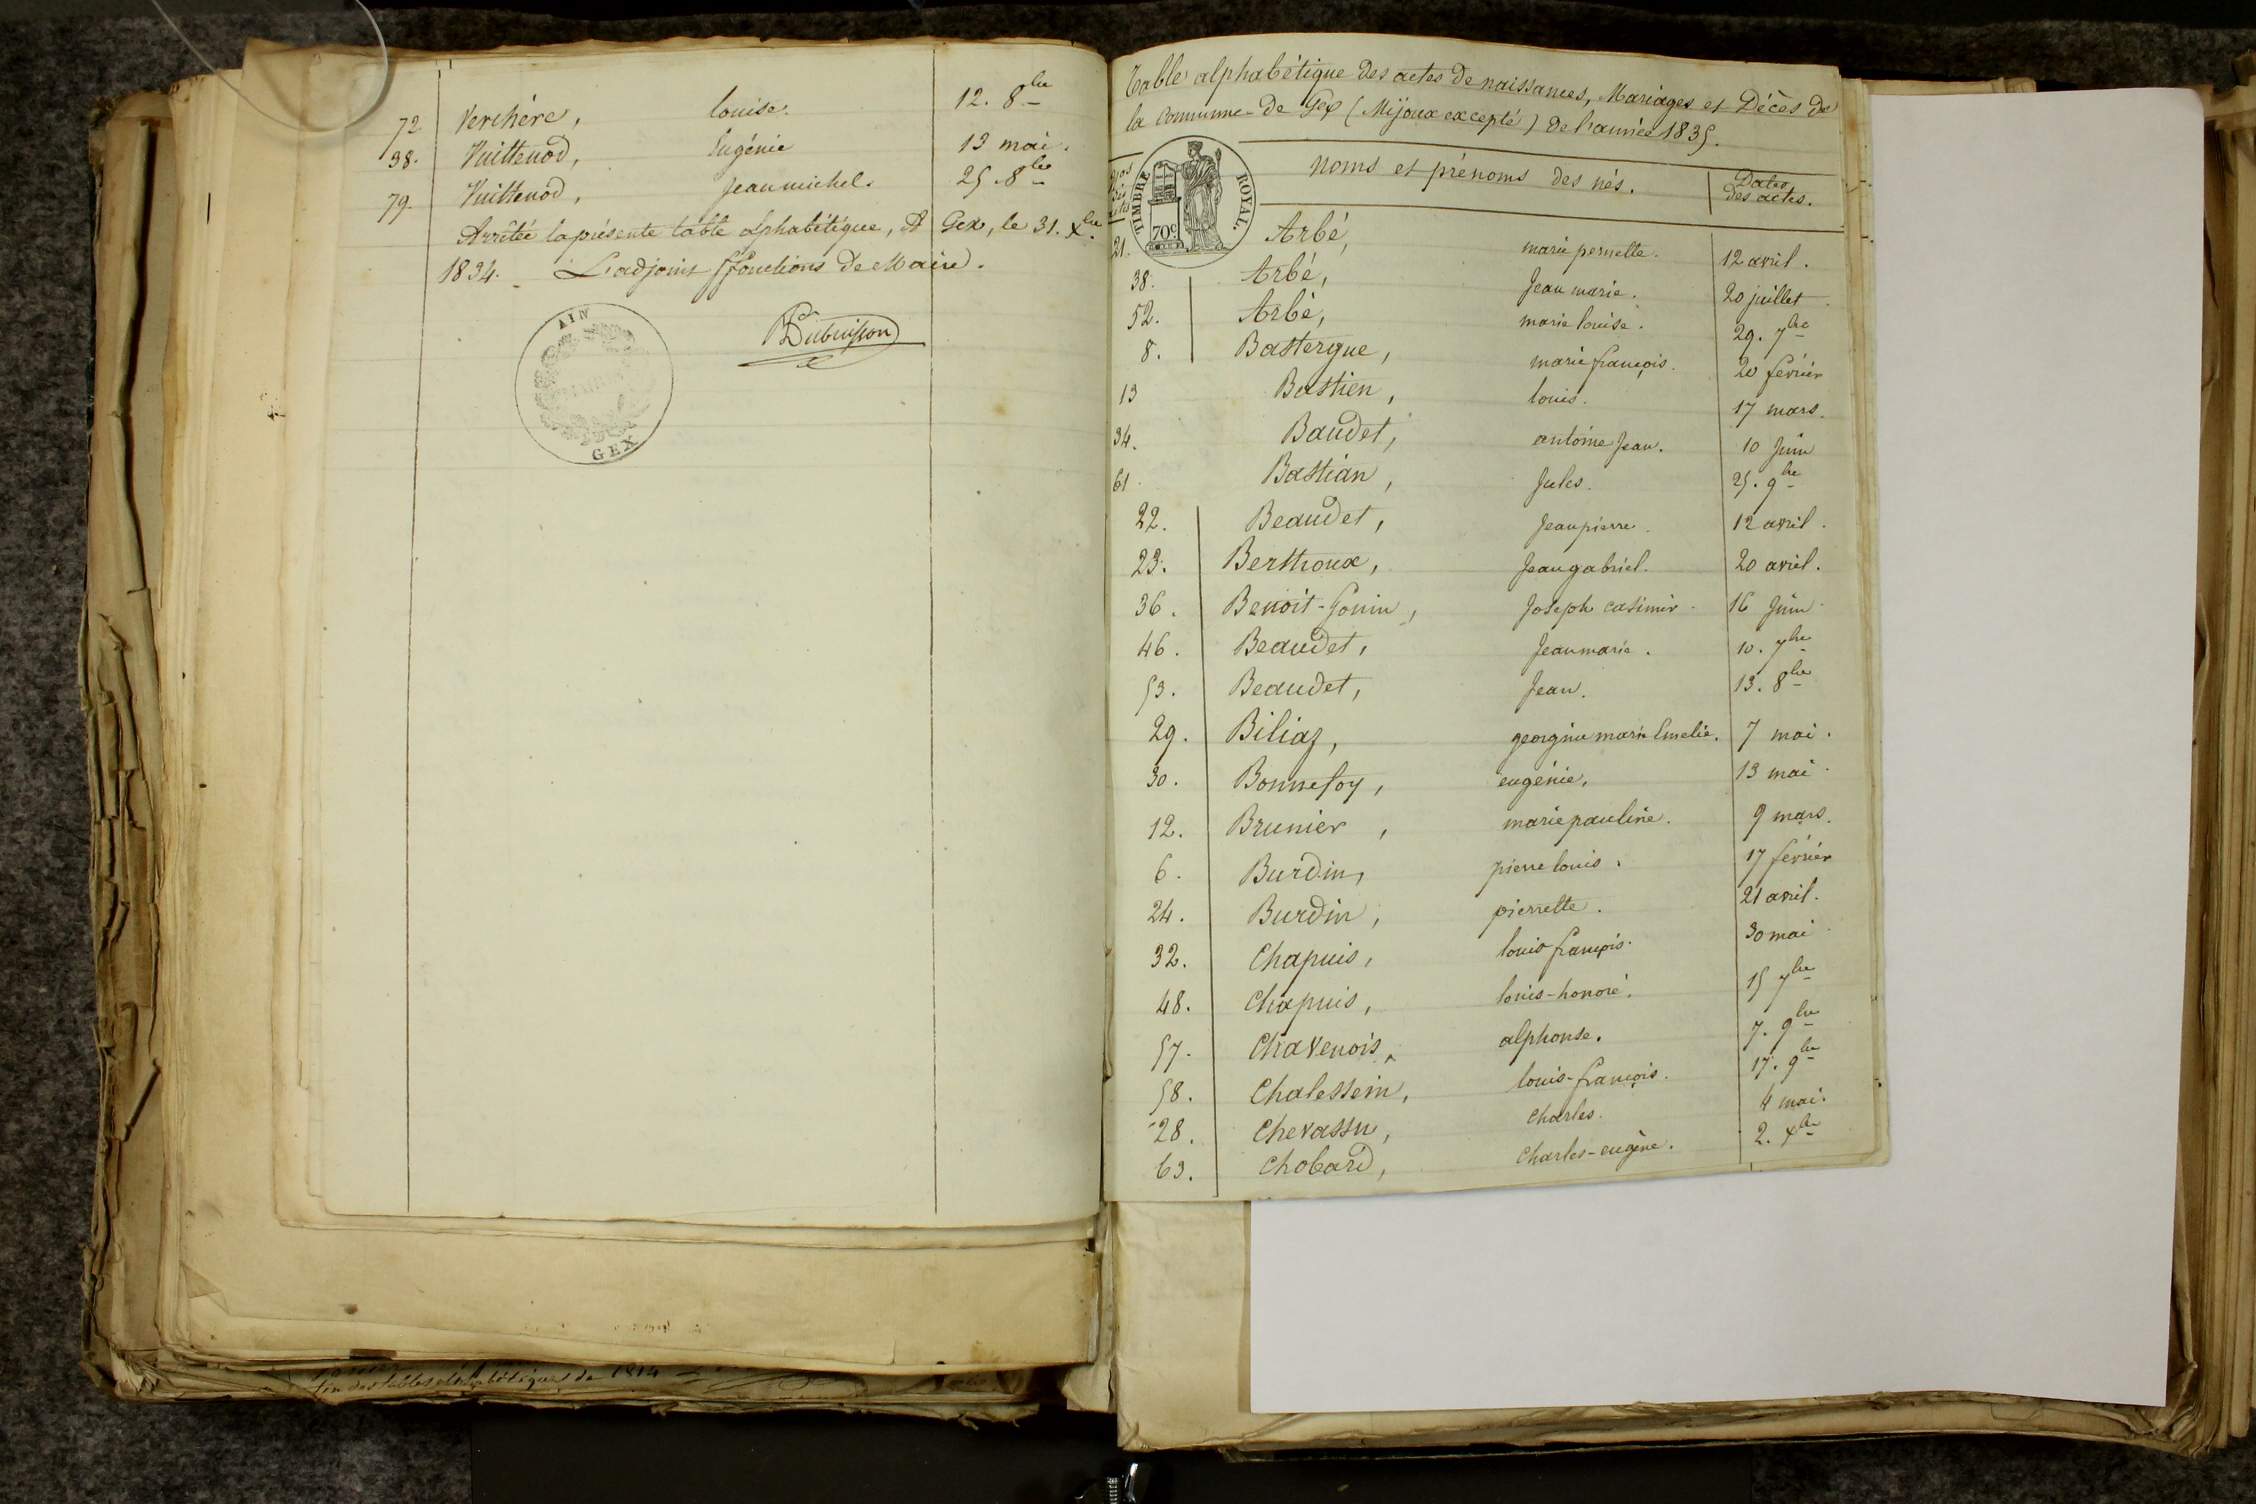 72 Verchère, louise. 12. 8bre
38. Vuittenod, Eugénie 13 mai.
79. Vuittenod, Jean michel. 25. 8bre
Arrêtée la présente table alphabétique, A Gex, le 31. Xbre
1834. L'adjoint ffonctions de Maire.
AIN
GEX
Table alphabétique des actes de naissances, Mariages et Décès de
la Commune de Gex (Mijoux excepté) de l'année 1835.
Nos des actes Noms et prénoms des nés. Dates des actes.
TIMBRE ROYAL.
70c
21. Arbé, marie pernette. 12 avril.
38. Arbé, Jean marie. 20 juillet.
52. Arbé, marie louise. 29. 7bre
8. Bastergue, marie françois. 20 février
13 Bastien, louis. 17 mars.
34. Baudet, antoine Jean. 10 Juin
61. Bastian, Jules. 25. 9bre
22. Beaudet, Jean pierre. 12 avril.
23. Berthoux, Jean gabriel. 20 avril.
36. Benoit-Gonin, Joseph casimir. 16 Juin.
46. Beaudet, Jean marie. 10. 7bre
53. Beaudet, Jean. 13. 8bre
29. Biliaz, georgine marie Emelie. 7 mai.
30. Bonnefoy, eugénie. 13 mai.
12. Brunier, marie pauline. 9 mars.
6. Burdin, pierre louis. 17 février
24. Burdin, pierrette. 21 avril.
32. Chapuis, louis françois. 30 mai.
48. Chapuis, louis-honoré. 15 7bre
57. Chavenois, alphonse. 7. 9bre
58. Chalessein, louis-françois. 17. 9bre
28. Chevassu, Charles. 4 mai.
63. Chobard, Charles-eugène. 2. Xbre
fin des tables alphabétiques de 1814